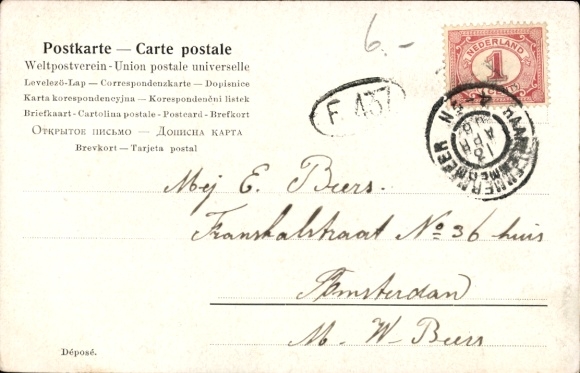 6.-
Postkarte — Carte postale
Weltpostverein - Union postale universelle
Levelező-Lap — Correspondenzkarte — Dopisnice
Karta korespondencyjna — Korespondenční lístek
Briefkaart - Cartolina postale - Postcard - Brefkort
Открытое письмо — Дописна карта
Brevkort — Tarjeta postal
NEDERLAND
1
CENT
F 437
HAARLEMMERMEER
3 APR
4-5N
Mej E. Beers.
Franshalstraat No 36 huis
Amsterdam
M. W- Beers
Déposé.